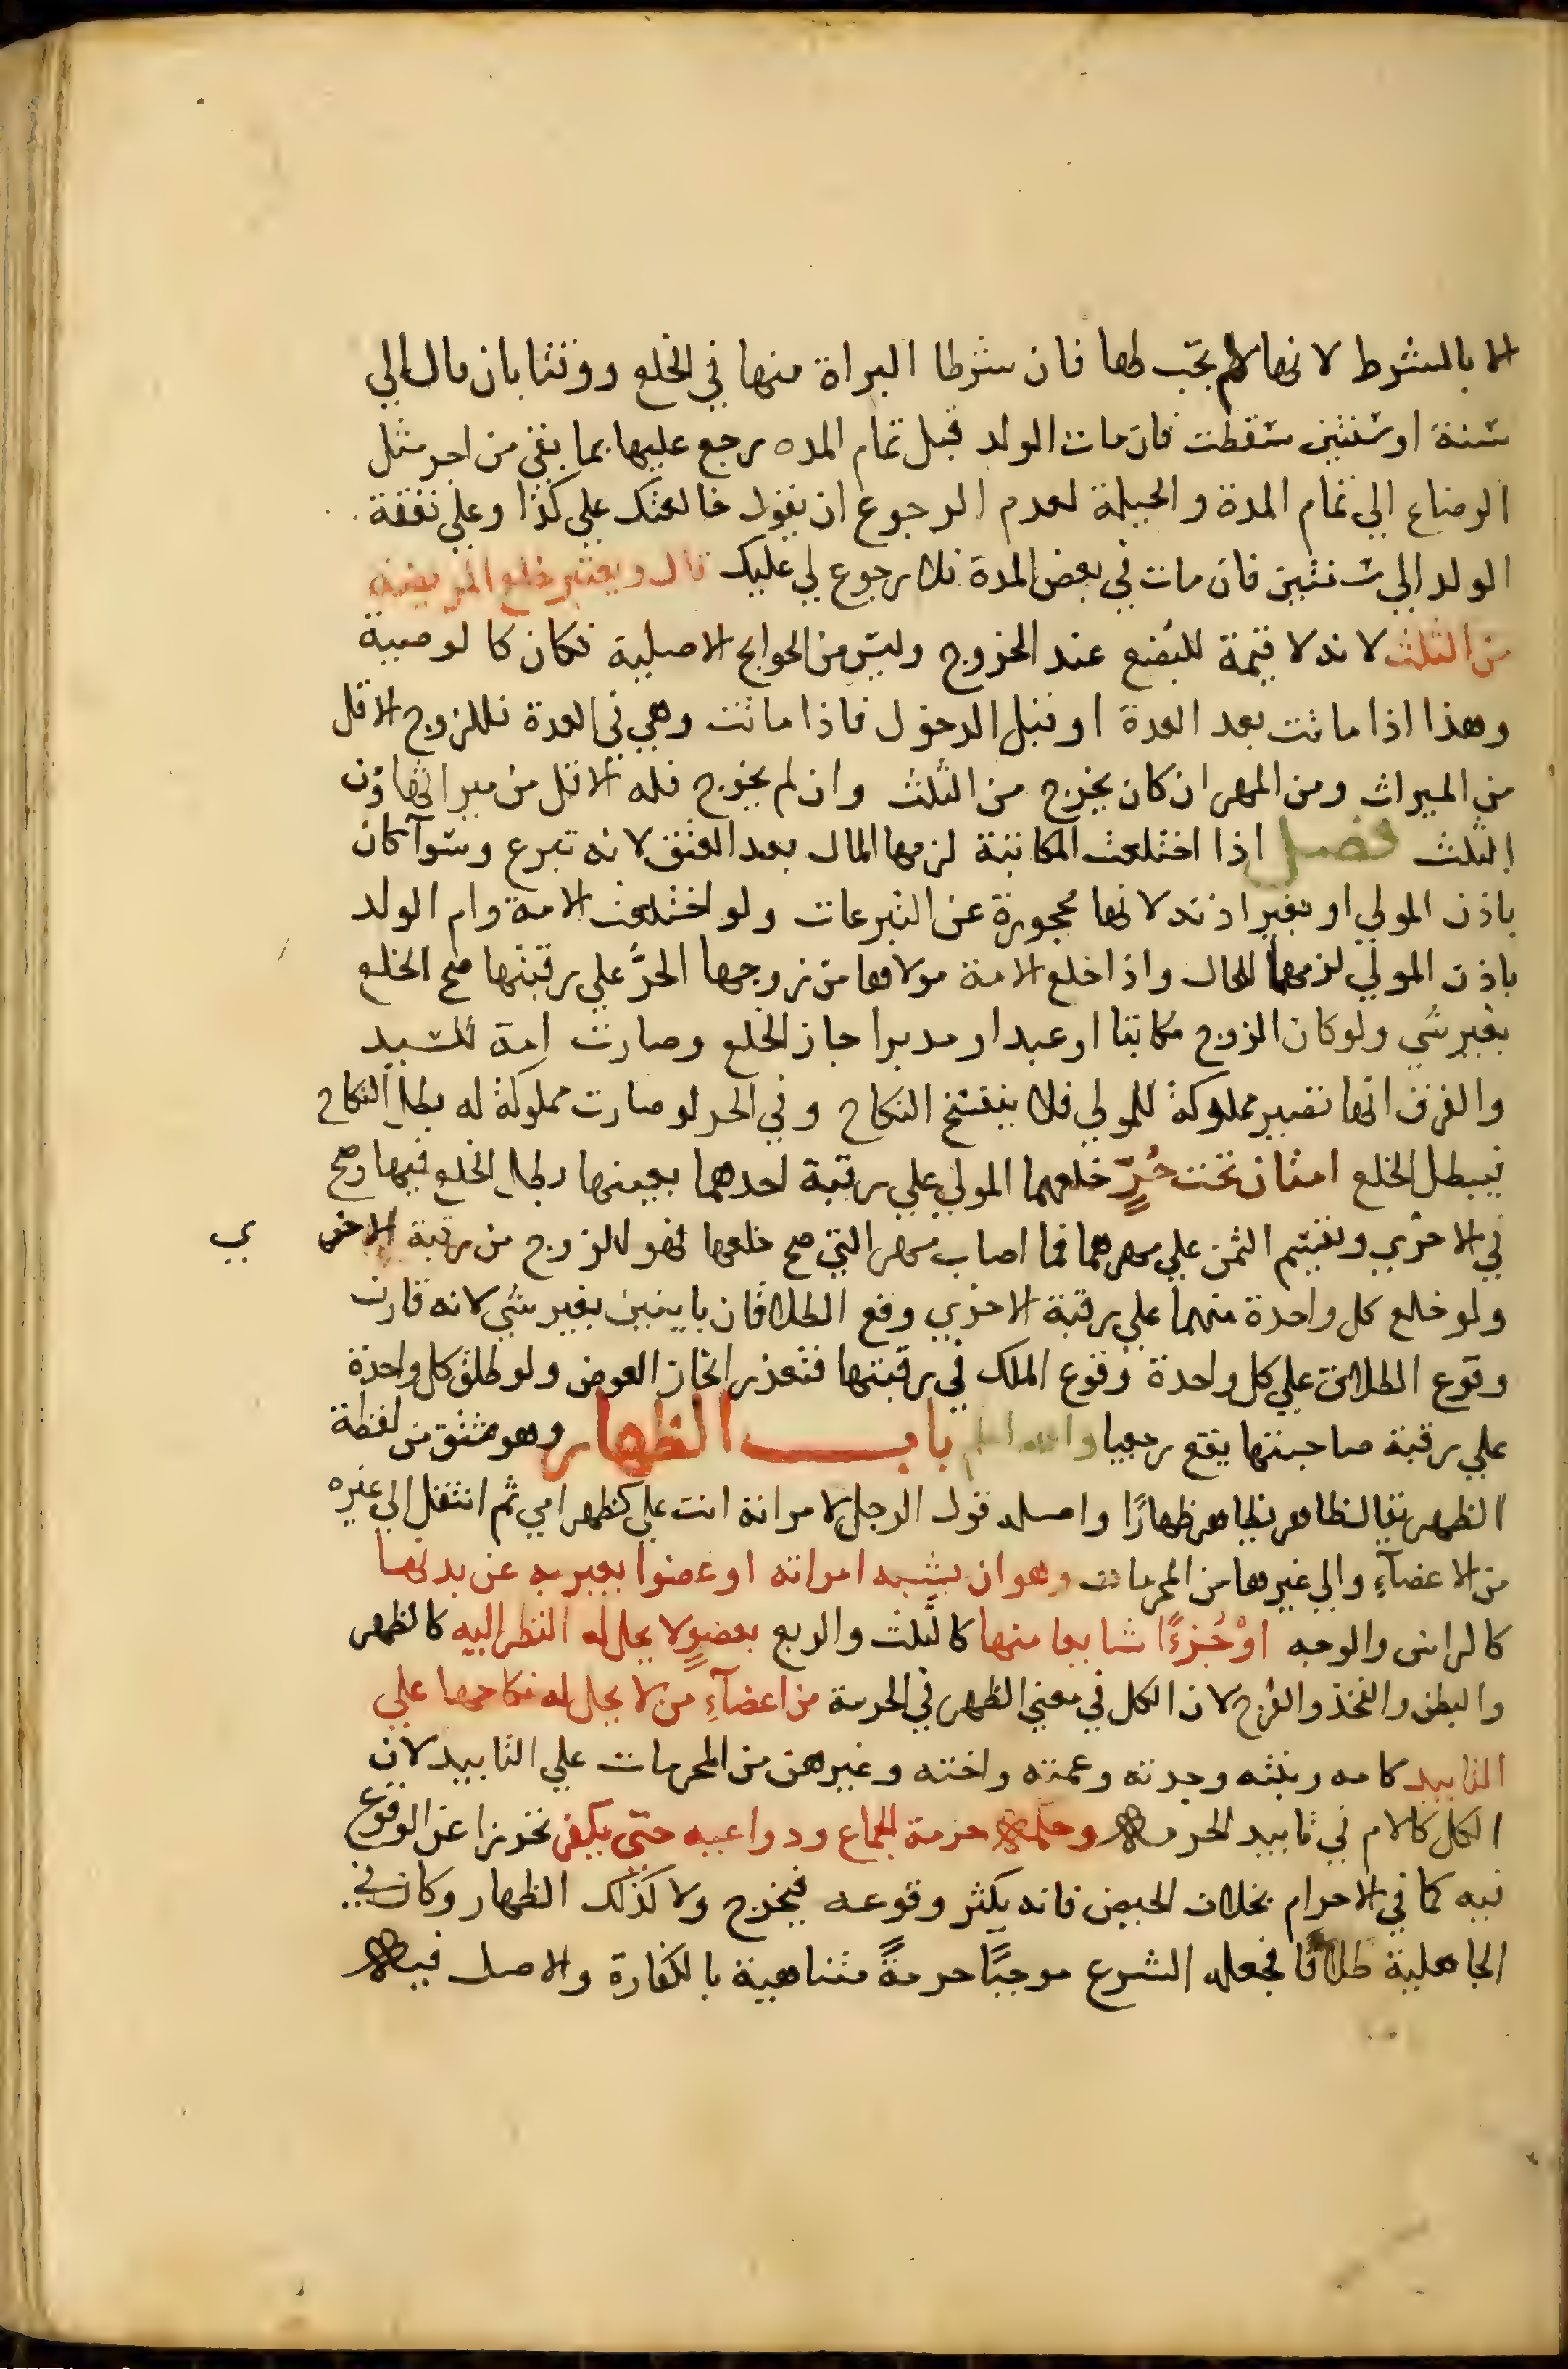 الا بالشرط لانها لم تجب لها فان شرطا البراة منها في الخلع ووقتا بان قال الي
سنة او سنتين سقطت فان مات الولد قبل تمام المده رجع عليها بما بقي من اجر مثل
الرضاع الي تمام المدة والحيلة لعدم الرجوع ان يقول خالعتك علي كذا وعلي نفقة
الولد الي سنتين فان مات في بعض المدة فلا رجوع لي عليك قال ويعتبر خلع المريضة
من الثلث لانه لا قيمة للبضع عند الخروج وليس من الحوايج الاصلية فكان كالوصية
وهذا اذا ماتت بعد العدة او قبل الدخول فاذا ماتت وهي في العدة فللزوج الاقل
من الميراث ومن المهر ان كان يخرج من الثلث وان لم يخرج فله الاقل من ميراثها ومن
الثلث فصل اذا اختلعت المكاتبة لزمها المال بعد العتق لانه تبرع وسوآ كان
باذن المولي او بغير اذنه لانها محجورة عن التبرعات ولو اختلعت الامة وام الولد
باذن المولي لزمهما المال واذا خلع الامة مولاها من زوجها الحرُّ علي رقبتها صح الخلع
بغير شي ولو كان الزوج مكاتبا او عبدا او مدبرا جاز الخلع وصارت امة للسيد
والفرق انها تصير مملوكة للمولي فلا ينفسخ النكاح وفي الحر لو صارت مملوكة له بطل النكاح
فيبطل الخلع امتان تحت حُرٍّ خلعهما المولي علي رقبة احدهما بعينها بطل الخلع فيها وصح
في الاخري ويقسم الثمن علي مهرهما فما اصاب مهر التي صح خلعها فهو للزوج من رقبة الاخر ي
ولو خلع كل واحدة منهما علي رقبة الاخري وقع الطلاقان باينين بغير شي لانه قارن
وقوع الطلاق علي كل واحدة وقوع الملك في رقبتها فتعذر ايجاز العوض ولو طلق كل واحدة
علي رقبة صاحبتها يقع رجعيا والله اعلم باب الظهار وهو مشتق من لفظة
الظهر يقال ظاهر يظاهر ظهارًا واصله قول الرجل لامراته انت علي كظهر امي ثم انتقل الي غيره
من الاعضآءِ والي غيرها من المحرمات وهو ان يشبه امراته او عضوا يعبر به عن بدنها
كالراس والوجه اوْ جُزءًا شايعا منها كالثلث والربع بعضوٍ لا يحل له النظر اليه كالظهر
والبطن والفخذ والفرج لان الكل في معني الظهر في الحرمة من اعضآءِ من لا يحل له نكاحها علي
التابيد كامه وبنته وجدته وعمته واخته وغيرهن من المحرمات علي التابيد لان
الكل كالام في تابيد الحرمة وحكمه حرمة الجماع ودواعيه حتي يكفر تحرزا عن الوقوع
فيه كما في الاحرام بخلاف الحيض فانه يكثر وقوعه فيخرج ولا كذلك الظهار وكان في
الجاهلية طلاقًا فجعله الشرع موجبًا حرمةً متناهية بالكفارة والاصل فيه